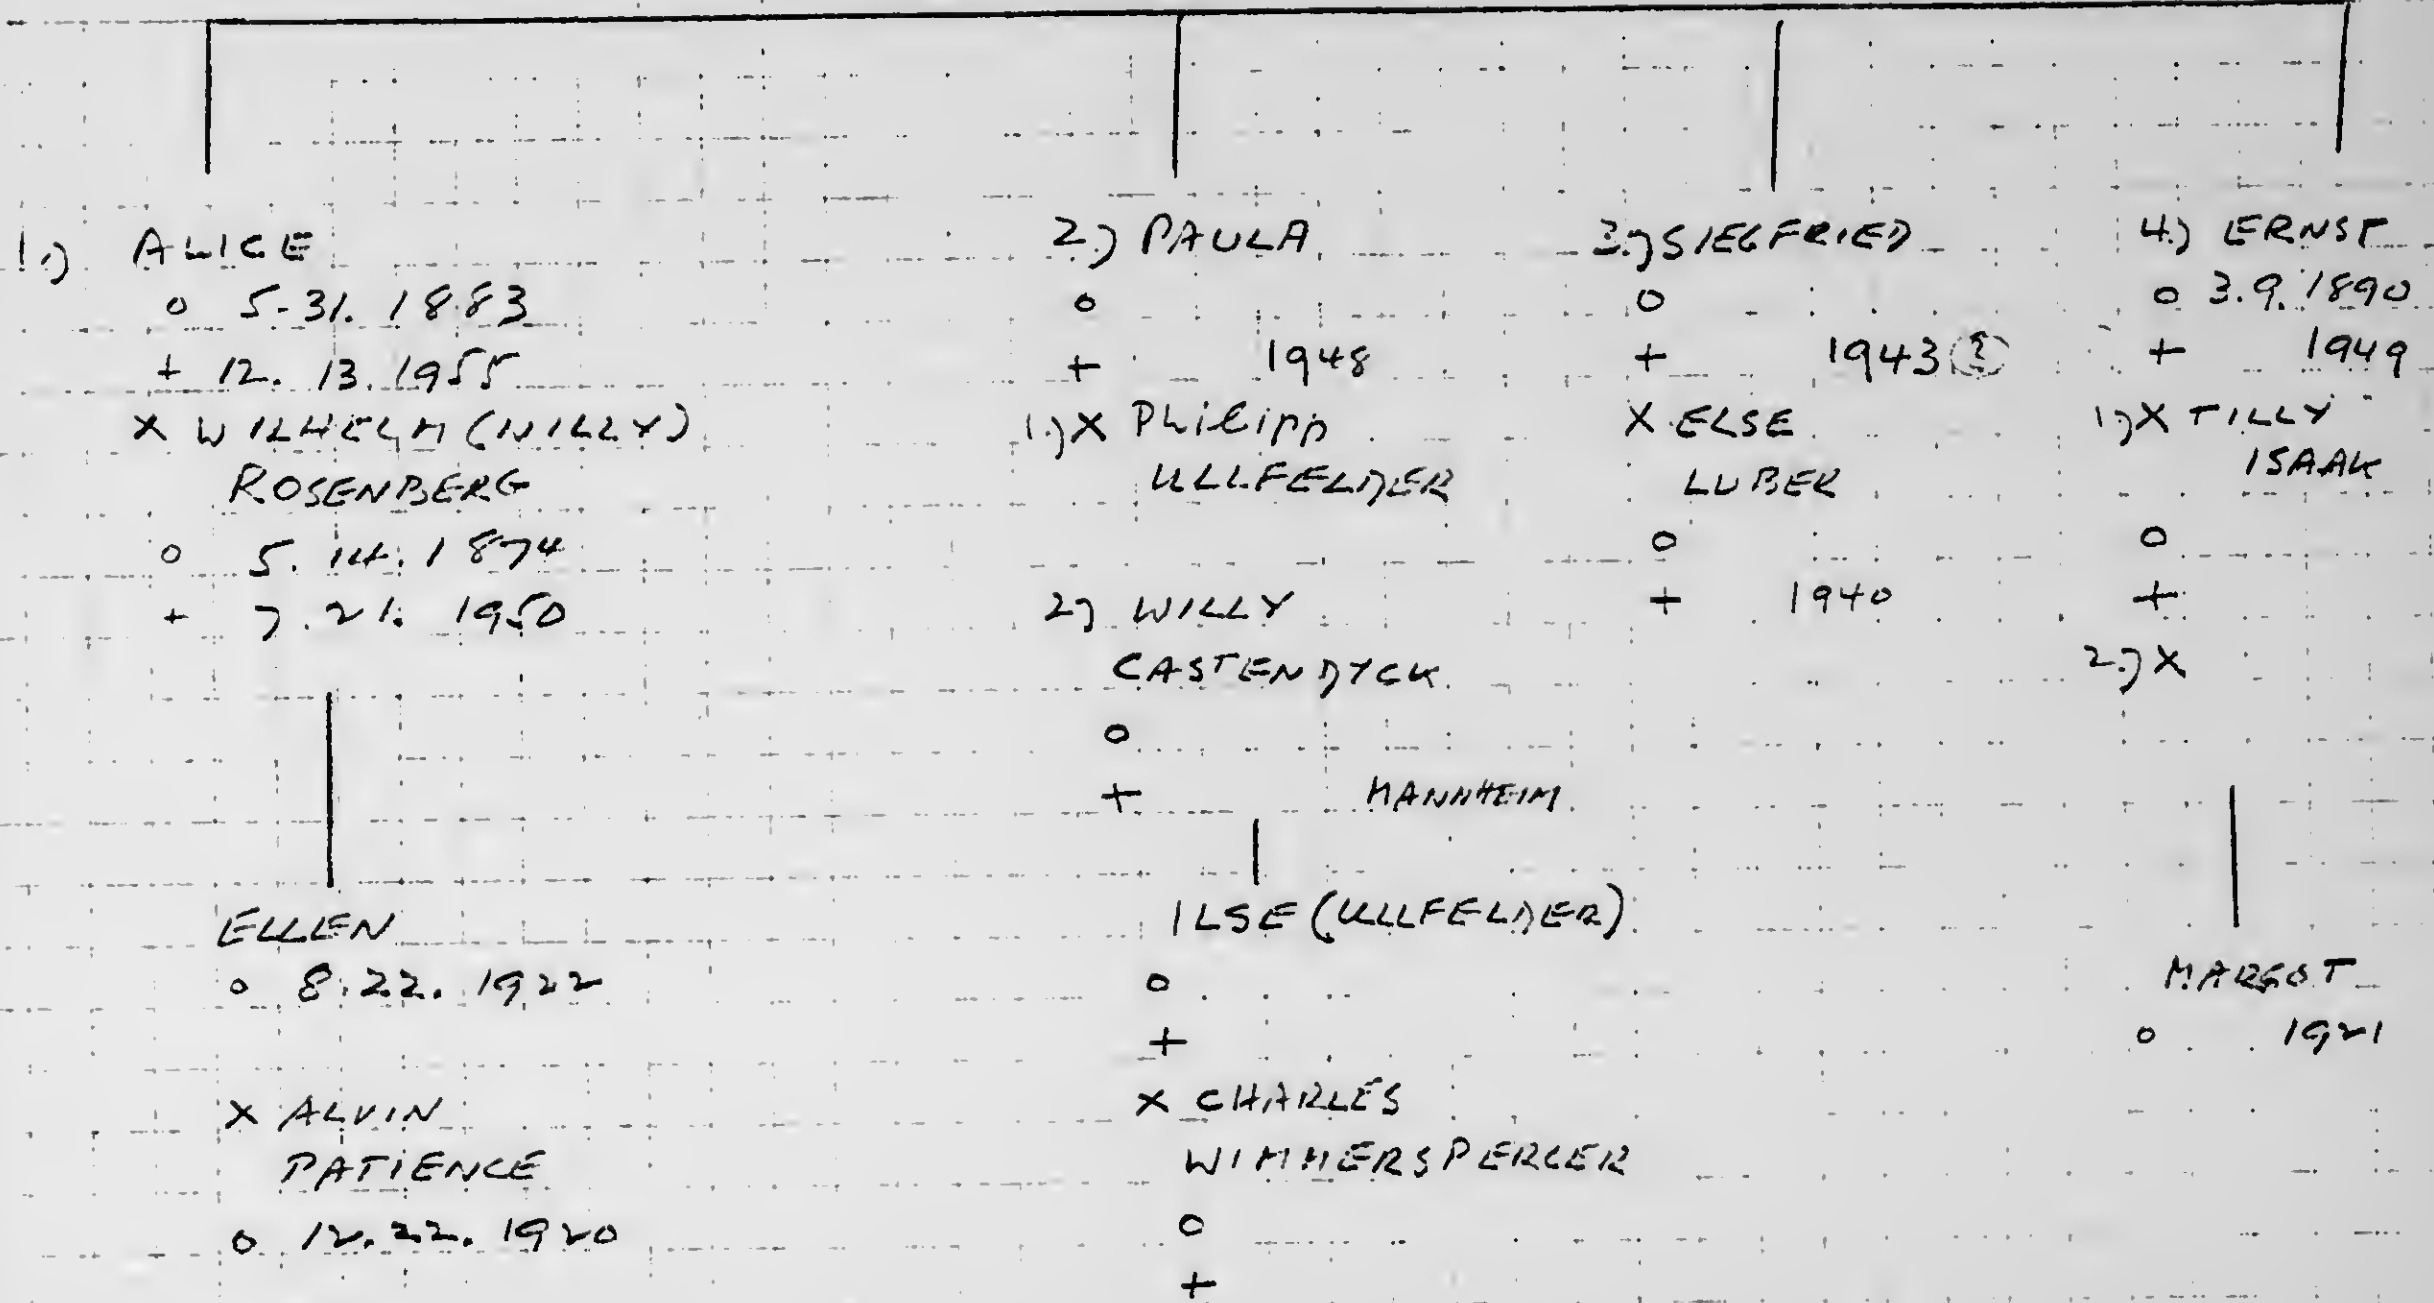 1.) ALICE
o 5-31. 1883
+ 12. 13. 1955
X WILHELM (WILLY)
ROSENBERG
o 5. 14. 1874
+ 7. 21. 1950
ELLEN
o 8.22. 1922
X ALVIN
PATIENCE
o 12.22. 1920
2.) PAULA
o
+ 1948
1.) X Philipp
ULLFELDER
2) WILLY
CASTENDYCK
o
+ MANNHEIM
ILSE (ULLFELDER)
o
+
X CHARLES
WIMMERSPERGER
o
+
3.) SIEGFRIED
o
+ 1943 (?)
X ELSE
LUBER
o
+ 1940
4.) ERNST
o 3.9. 1890
+ 1949
1.) X TILLY
ISAAK
o
+
2.) X
MARGOT
o 1921